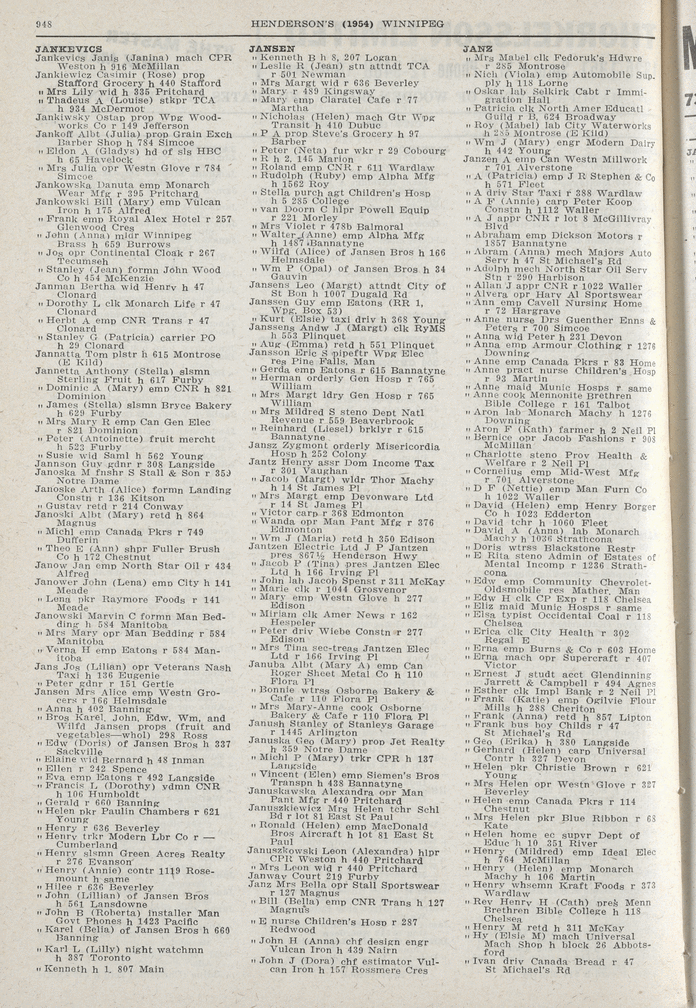 948
HENDERSON'S (1954) WINNIPEG
JANKEVICS
Jankevics Janis (Janina) mach CPR
Weston h 916 McMillan
Jankiewicz Casimir (Rose) prop
Stafford Grocery h 440 Stafford
" Mrs Lily wid h 335 Pritchard
" Thadeus A (Louise) stkpr TCA
h 934 McDermot
Jankiwsky Ostap prop Wpg Wood-
works Co r 149 Jefferson
Jankoff Albt (Julia) prop Grain Exch
Barber Shop h 784 Simcoe
" Eldon A (Gladys) hd of sls HBC
h 65 Havelock
" Mrs Julia opr Westn Glove r 784
Simcoe
Jankowska Danuta emp Monarch
Wear Mfg r 395 Pritchard
Jankowski Bill (Mary) emp Vulcan
Iron h 175 Alfred
" Frank emp Royal Alex Hotel r 257
Glenwood Cres
" John (Anna) mldr Winnipeg
Brass h 659 Burrows
" Jos opr Continental Cloak r 267
Tecumseh
" Stanley (Jean) formn John Wood
Co h 454 McKenzie
Janman Bertha wid Henry h 47
Clonard
" Dorothy L clk Monarch Life r 47
Clonard
" Herbt A emp CNR Trans r 47
Clonard
" Stanley G (Patricia) carrier PO
h 29 Clonard
Jannatta Tom plstr h 615 Montrose
(E Kild)
Jannetta Anthony (Stella) slsmn
Sterling Fruit h 617 Furby
" Dominic A (Mary) emp CNR h 821
Dominion
" James (Stella) slsmn Bryce Bakery
h 629 Furby
" Mrs Mary R emp Can Gen Elec
r 821 Dominion
" Peter (Antoinette) fruit mercht
h 523 Furby
" Susie wid Saml h 562 Young
Jannson Guy gdnr r 308 Langside
Janoska M fnshr S Stall & Son r 359
Notre Dame
Janoske Arth (Alice) formn Landing
Constn r 136 Kitson
" Gustav retd r 214 Conway
Janoski Albt (Mary) retd h 864
Magnus
" Michl emp Canada Pkrs r 749
Dufferin
" Theo E (Ann) shpr Fuller Brush
Co h 172 Chestnut
Janow Jan emp North Star Oil r 434
Alfred
Janower John (Lena) emp City h 141
Meade
" Lena pkr Raymore Foods r 141
Meade
Janowski Marvin C formn Man Bed-
ding h 584 Manitoba
" Mrs Mary opr Man Bedding r 584
Manitoba
" Verna H emp Eatons r 584 Man-
itoba
Jans Jos (Lilian) opr Veterans Nash
Taxi h 136 Eugenie
" Peter gdnr r 151 Gertie
Jansen Mrs Alice emp Westn Gro-
cers r 166 Helmsdale
" Anna h 402 Banning
" Bros Karel, John, Edw, Wm, and
Wilfd Jansen props (fruit and
vegetables—whol) 298 Ross
" Edw (Doris) of Jansen Bros h 337
Sackville
" Elaine wid Bernard h 48 Inman
" Ellen r 242 Spence
" Eva emp Eatons r 492 Langside
" Francis L (Dorothy) ydmn CNR
h 106 Humboldt
" Gerald r 660 Banning
" Helen pkr Paulin Chambers r 621
Young
" Henry r 636 Beverley
" Henry trkr Modern Lbr Co r —
Cumberland
" Henry slsmn Green Acres Realty
r 276 Evanson
" Henry (Annie) contr 1119 Rose-
mount h same
" Hilee r 636 Beverley
" John (Lillian) of Jansen Bros
h 561 Lansdowne
" John B (Roberta) installer Man
Govt Phones h 1423 Pacific
" Karel (Belia) of Jansen Bros h 660
Banning
" Karl L (Lilly) night watchmn
h 387 Toronto
" Kenneth h 1, 807 Main
JANSEN
" Kenneth B h 8, 207 Logan
" Leslie R (Jean) stn attndt TCA
r 501 Newman
" Mrs Margt wid r 636 Beverley
" Mary r 489 Kingsway
" Mary emp Claratel Cafe r 77
Martha
" Nicholas (Helen) mach Gtr Wpg
Transit h 410 Dubuc
" P A prop Steve's Grocery h 97
Barber
" Peter (Neta) fur wkr r 29 Cobourg
" R h 2, 145 Marion
" Roland emp CNR r 611 Wardlaw
" Rudolph (Ruby) emp Alpha Mfg
h 1562 Roy
" Stella purch agt Children's Hosp
h 5 285 College
" van Doorn C hlpr Powell Equip
r 221 Morley
" Mrs Violet r 478b Balmoral
" Walter (Anne) emp Alpha Mfg
h 1487 Bannatyne
" Wilfd (Alice) of Jansen Bros h 166
Helmsdale
" Wm P (Opal) of Jansen Bros h 34
Gauvin
Jansens Leo (Margt) attndt City of
St Bon h 1007 Dugald Rd
Janssen Guy emp Eatons (RR 1,
Wpg, Box 53)
" Kurt (Elsie) taxi driv h 368 Young
Janssens Andw J (Margt) clk RyMS
h 553 Plinquet
" Aug (Emma) retd h 551 Plinquet
Jansson Eric S pipeftr Wpg Elec
res Pine Falls, Man
" Gerda emp Eatons r 615 Bannatyne
" Herman orderly Gen Hosp r 765
William
" Mrs Margt ldry Gen Hosp r 765
William
" Mrs Mildred S steno Dept Natl
Revenue r 559 Beaverbrook
" Reinhard (Liesel) brklyr r 615
Bannatyne
Jansz Zygmont orderly Misericordia
Hosp h 252 Colony
Jantz Henry assr Dom Income Tax
r 301 Vaughan
" Jacob (Margt) wldr Thor Machy
h 14 St James Pl
" Mrs Margt emp Devonware Ltd
r 14 St James Pl
" Victor carp r 368 Edmonton
" Wanda opr Man Pant Mfg r 376
Edmonton
" Wm J (Maria) retd h 350 Edison
Jantzen Electric Ltd J P Jantzen
pres 867½ Henderson Hwy
" Jacob P (Tina) pres Jantzen Elec
Ltd h 166 Irving Pl
" John lab Jacob Spenst r 311 McKay
" Marie clk r 1044 Grosvenor
" Mary emp Westn Glove h 277
Edison
" Miriam clk Amer News r 162
Hespeler
" Peter driv Wiebe Constn r 277
Edison
" Mrs Tina sec-treas Jantzen Elec
Ltd r 166 Irving Pl
Januba Albt (Mary A) emp Can
Roger Sheet Metal Co h 110
Flora Pl
" Bonnie wtrss Osborne Bakery &
Cafe r 110 Flora Pl
" Mrs Mary-Anne cook Osborne
Bakery & Cafe r 110 Flora Pl
Janush Stanley of Stanleys Garage
r 1445 Arlington
Januska Geo (Mary) prop Jet Realty
h 359 Notre Dame
" Michl P (Mary) trkr CPR h 137
Langside
" Vincent (Elen) emp Siemen's Bros
Transph h 438 Bannatyne
Januskawska Alexandra opr Man
Pant Mfg r 440 Pritchard
Januszkiewicz Mrs Helen tchr Schl
Bd r lot 81 East St Paul
" Ronald (Helen) emp MacDonald
Bros Aircraft h lot 81 East St
Paul
Januszkowski Leon (Alexandra) hlpr
CPR Weston h 440 Pritchard
" Mrs Leon wid r 440 Pritchard
Janway Court 219 Furby
Janz Mrs Bella opr Stall Sportswear
r 127 Magnus
" Bill (Bella) emp CNR Trans h 127
Magnus
" E nurse Children's Hosp r 287
Redwood
" John H (Anna) chf design engr
Vulcan Iron h 439 Nairn
" John J (Dora) chf estimator Vul-
can Iron h 157 Rossmere Cres
JANZ
" Mrs Mabel clk Fedoruk's Hdwre
r 285 Montrose
" Nich (Viola) emp Automobile Sup-
ply h 118 Lorne
" Oskar lab Selkirk Cabt r Immi-
gration Hall
" Patricia clk North Amer Educatl
Guild r B, 624 Broadway
" Roy (Mabel) lab City Waterworks
h 285 Montrose (E Kild)
" Wm J (Mary) engr Modern Dairy
h 442 Young
Janzen A emp Can Westn Millwork
r 701 Alverstone
" A (Patricia) emp J R Stephen & Co
h 571 Fleet
" A driv Star Taxi r 388 Wardlaw
" A F (Annie) carp Peter Koop
Constn h 1112 Waller
" A J appr CNR r lot 8 McGillivray
Blvd
" Abraham emp Dickson Motors r
1857 Bannatyne
" Abram (Anna) mech Majors Auto
Serv h 47 St Michael's Rd
" Adolph mech North Star Oil Serv
Stn r 290 Harbison
" Allan J appr CNR r 1022 Waller
" Alvera opr Hary Al Sportswear
" Ann emp Cavell Nursing Home
r 72 Hargrave
" Anne nurse Drs Guenther Enns &
Peters r 700 Simcoe
" Anna wid Peter h 231 Devon
" Anna emp Armour Clothing r 1276
Downing
" Anne emp Canada Pkrs r 83 Home
" Anne pract nurse Children's Hosp
r 93 Martin
" Anne maid Munic Hosps r same
" Anne cook Mennonite Brethren
Bible College r 161 Talbot
" Aron lab Monarch Machy h 1276
Downing
" Aron F (Kath) farmer h 2 Neil Pl
" Bernice opr Jacob Fashions r 908
McMillan
" Charlotte steno Prov Health &
Welfare r 2 Neil Pl
" Cornelius emp Mid-West Mfg
r 701 Alverstone
" D F (Nettie) emp Man Furn Co
h 1022 Waller
" David (Helen) emp Henry Borger
Co h 1023 Edderton
" David tchr h 1060 Fleet
" David A (Anna) lab Monarch
Machy h 1036 Strathcona
" Doris wtrss Blackstone Restr
" E Rita steno Admin of Estates of
Mental Incomp r 1236 Strath-
cona
" Edw emp Community Chevrolet-
Oldsmobile res Mather, Man
" Edw H clk CP Exp r 118 Chelsea
" Eliz maid Munic Hosps r same
" Elsa typist Occidental Coal r 118
Chelsea
" Erica clk City Health r 302
Regal E
" Erna emp Burns & Co r 603 Home
" Erna mach opr Supercraft r 407
Victor
" Ernest J studt acct Glendinning
Jarrett & Campbell r 494 Agnes
" Esther clk Impl Bank r 2 Neil Pl
" Frank (Katie) emp Ogilvie Flour
Mills h 288 Cheriton
" Frank (Anna) retd h 857 Lipton
" Frank bus boy Childs r 47
St Michael's Rd
" Geo (Erika) h 380 Langside
" Gerhard (Helen) carp Universal
Contr h 327 Devon
" Helen pkr Christie Brown r 621
Young
" Mrs Helen opr Westn Glove r 327
Beverley
" Helen emp Canada Pkrs r 114
Chestnut
" Mrs Helen pkr Blue Ribbon r 68
Kate
" Helen home ec supvr Dept of
Educ h 10 351 River
" Henry (Mildred) emp Ideal Elec
h 764 McMillan
" Henry (Helen) emp Monarch
Machy h 106 Martin
" Henry whsemn Kraft Foods r 373
Wardlaw
" Rev Henry H (Cath) pres Menn
Brethren Bible College h 118
Chelsea
" Henry M retd h 311 McKay
" Hy (Elsie M) mach Universal
Mach Shop h block 26 Abbots-
ford
" Ivan driv Canada Bread r 47
St Michael's Rd